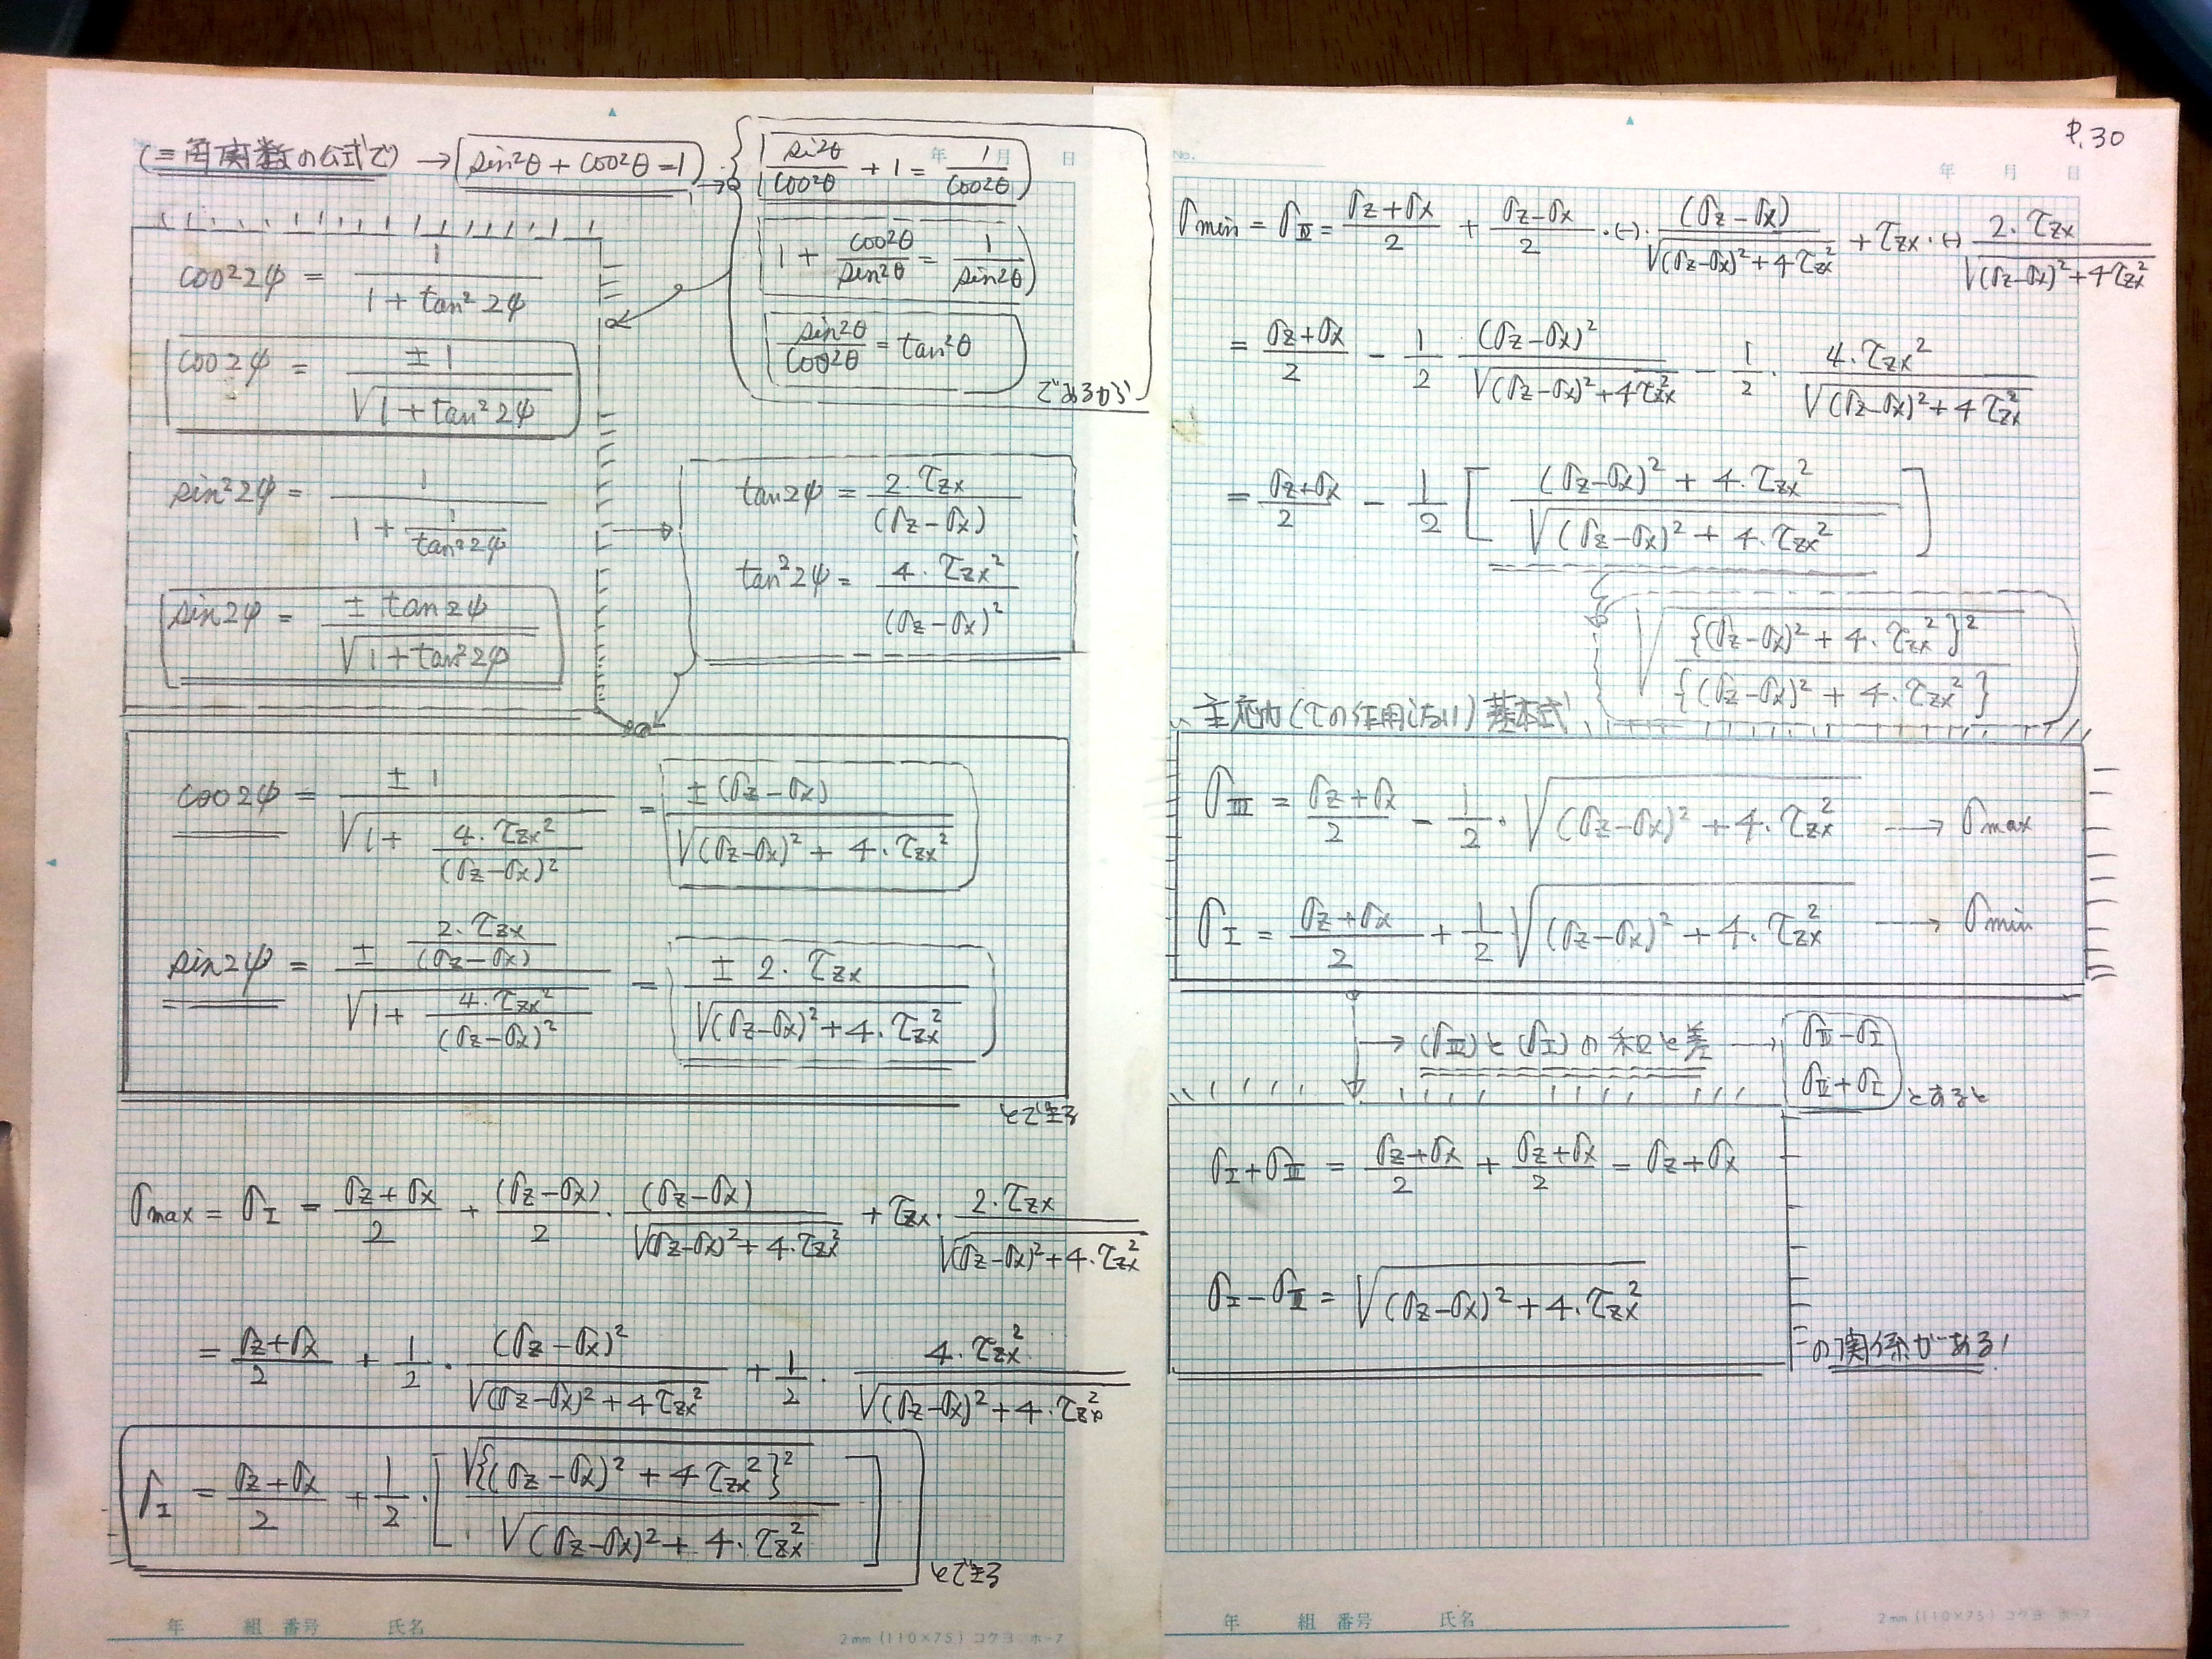 (三角関数の公式で) → sin²θ + cos²θ = 1 →
sin²θ/cos²θ + 1 = 1/cos²θ
1 + cos²θ/sin²θ = 1/sin²θ
sin²θ/cos²θ = tan²θ
であるから
cos²2ψ = 1/(1 + tan²2ψ)
cos2ψ = ±1/√(1 + tan²2ψ)
sin²2ψ = 1/(1 + 1/tan²2ψ)
sin2ψ = ± tan2ψ/√(1 + tan²2ψ)
tan2ψ = 2·τzx/(σz−σx)
tan²2ψ = 4·τzx²/(σz−σx)²
cos2ψ = ±1/√(1 + 4·τzx²/(σz−σx)²) = ±(σz−σx)/√((σz−σx)² + 4·τzx²)
sin2ψ = ± (2·τzx/(σz−σx))/√(1 + 4·τzx²/(σz−σx)²) = ± 2·τzx/√((σz−σx)² + 4·τzx²)
とできる
σmax = σI = (σz+σx)/2 + (σz−σx)/2 · (σz−σx)/√((σz−σx)² + 4·τzx²) + τzx · 2·τzx/√((σz−σx)² + 4·τzx²)
= (σz+σx)/2 + 1/2 · (σz−σx)²/√((σz−σx)² + 4τzx²) + 1/2 · 4·τzx²/√((σz−σx)² + 4·τzx²)
σI = (σz+σx)/2 + 1/2 · [√{(σz−σx)² + 4τzx²}²/√((σz−σx)² + 4·τzx²)]
とできる
年 組 番号 氏名
2mm (110×75) コクヨ ホ-7
P.30
No.
年 月 日
σmin = σIII = (σz+σx)/2 + (σz−σx)/2 ·(−)· (σz−σx)/√((σz−σx)² + 4τzx²) + τzx·(−) 2·τzx/√((σz−σx)² + 4τzx²)
= (σz+σx)/2 − 1/2 (σz−σx)²/√((σz−σx)² + 4τzx²) − 1/2 · 4·τzx²/√((σz−σx)² + 4τzx²)
= (σz+σx)/2 − 1/2 [((σz−σx)² + 4·τzx²)/√((σz−σx)² + 4·τzx²)]
√({(σz−σx)² + 4·τzx²}²/{(σz−σx)² + 4·τzx²})
主応力(τの作用しない)基本式
σIII = (σz+σx)/2 − 1/2 · √((σz−σx)² + 4·τzx²) → σmax
σI = (σz+σx)/2 + 1/2 √((σz−σx)² + 4·τzx²) → σmin
→ (σIII)と(σI)の和と差 → σIII−σI
σIII+σI とすると
σI+σIII = (σz+σx)/2 + (σz+σx)/2 = σz+σx
σI−σIII = √((σz−σx)² + 4·τzx²)
の関係がある!
年 組 番号 氏名
2mm (110×75) コクヨ ホ-7